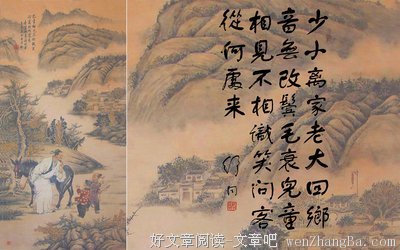 少小离家老大回鄉
音無改鬢毛衰兒童
相見不相識笑问客
從何處来
舒同
好文章阅读-文章吧 wenZhangBa.Com